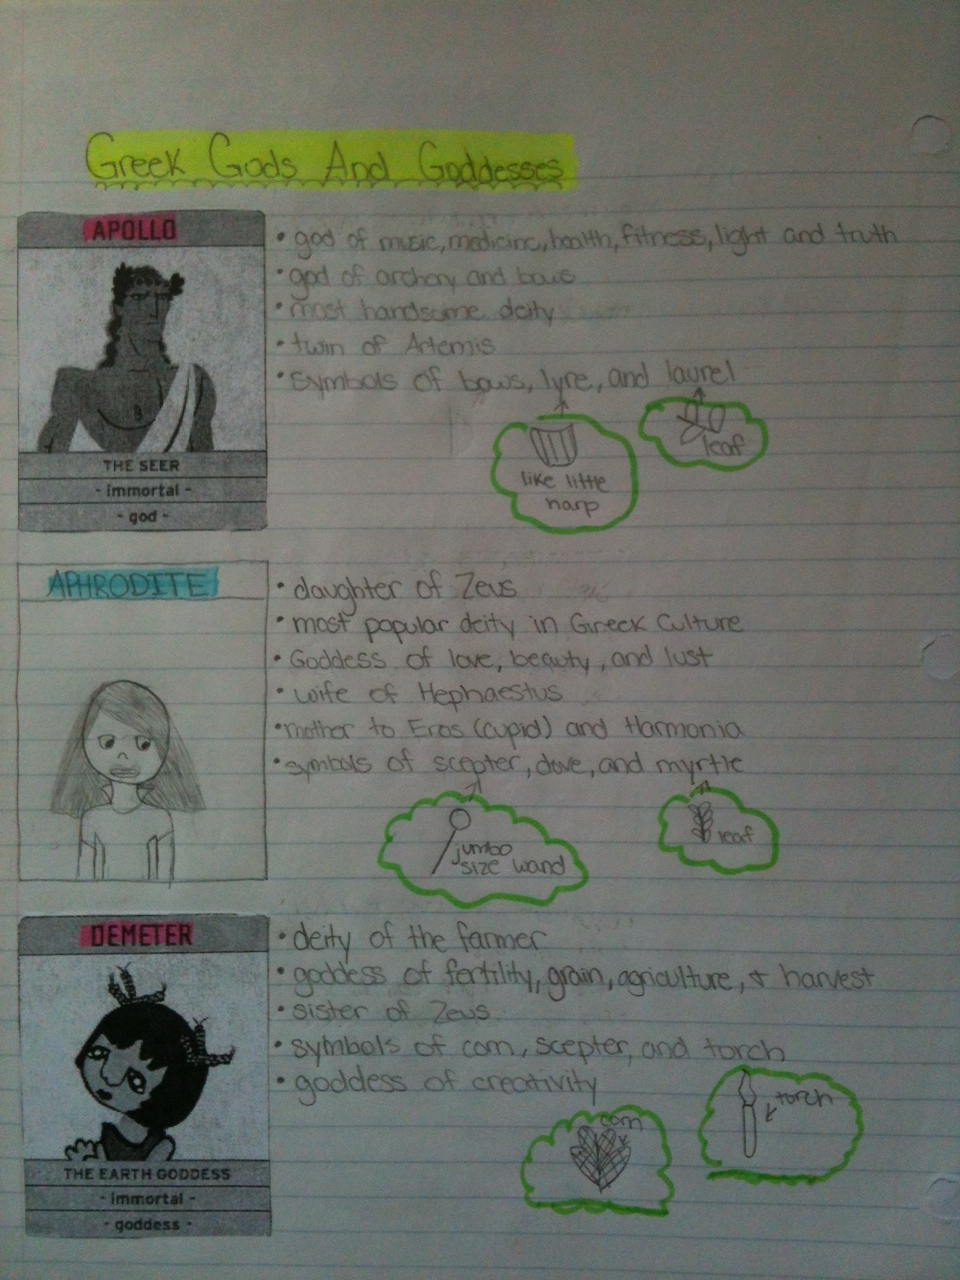 Greek Gods And Goddesses
APOLLO
• god of music, medicine, health, fitness, light and truth
• god of archery and bows
• most handsome deity
• twin of Artemis
• symbols of bows, lyre, and laurel
like little
harp
leaf
THE SEER
- immortal -
- god -
APHRODITE
• daughter of Zeus
• most popular deity in Greek Culture
• Goddess of love, beauty, and lust
• wife of Hephaestus
• mother to Eros (cupid) and Harmonia
• symbols of scepter, dove, and myrtle
jumbo
size wand
leaf
DEMETER
• deity of the farmer
• goddess of fertility, grain, agriculture, & harvest
• sister of Zeus
• symbols of corn, scepter, and torch
• goddess of creativity
corn
torch
THE EARTH GODDESS
- immortal -
- goddess -